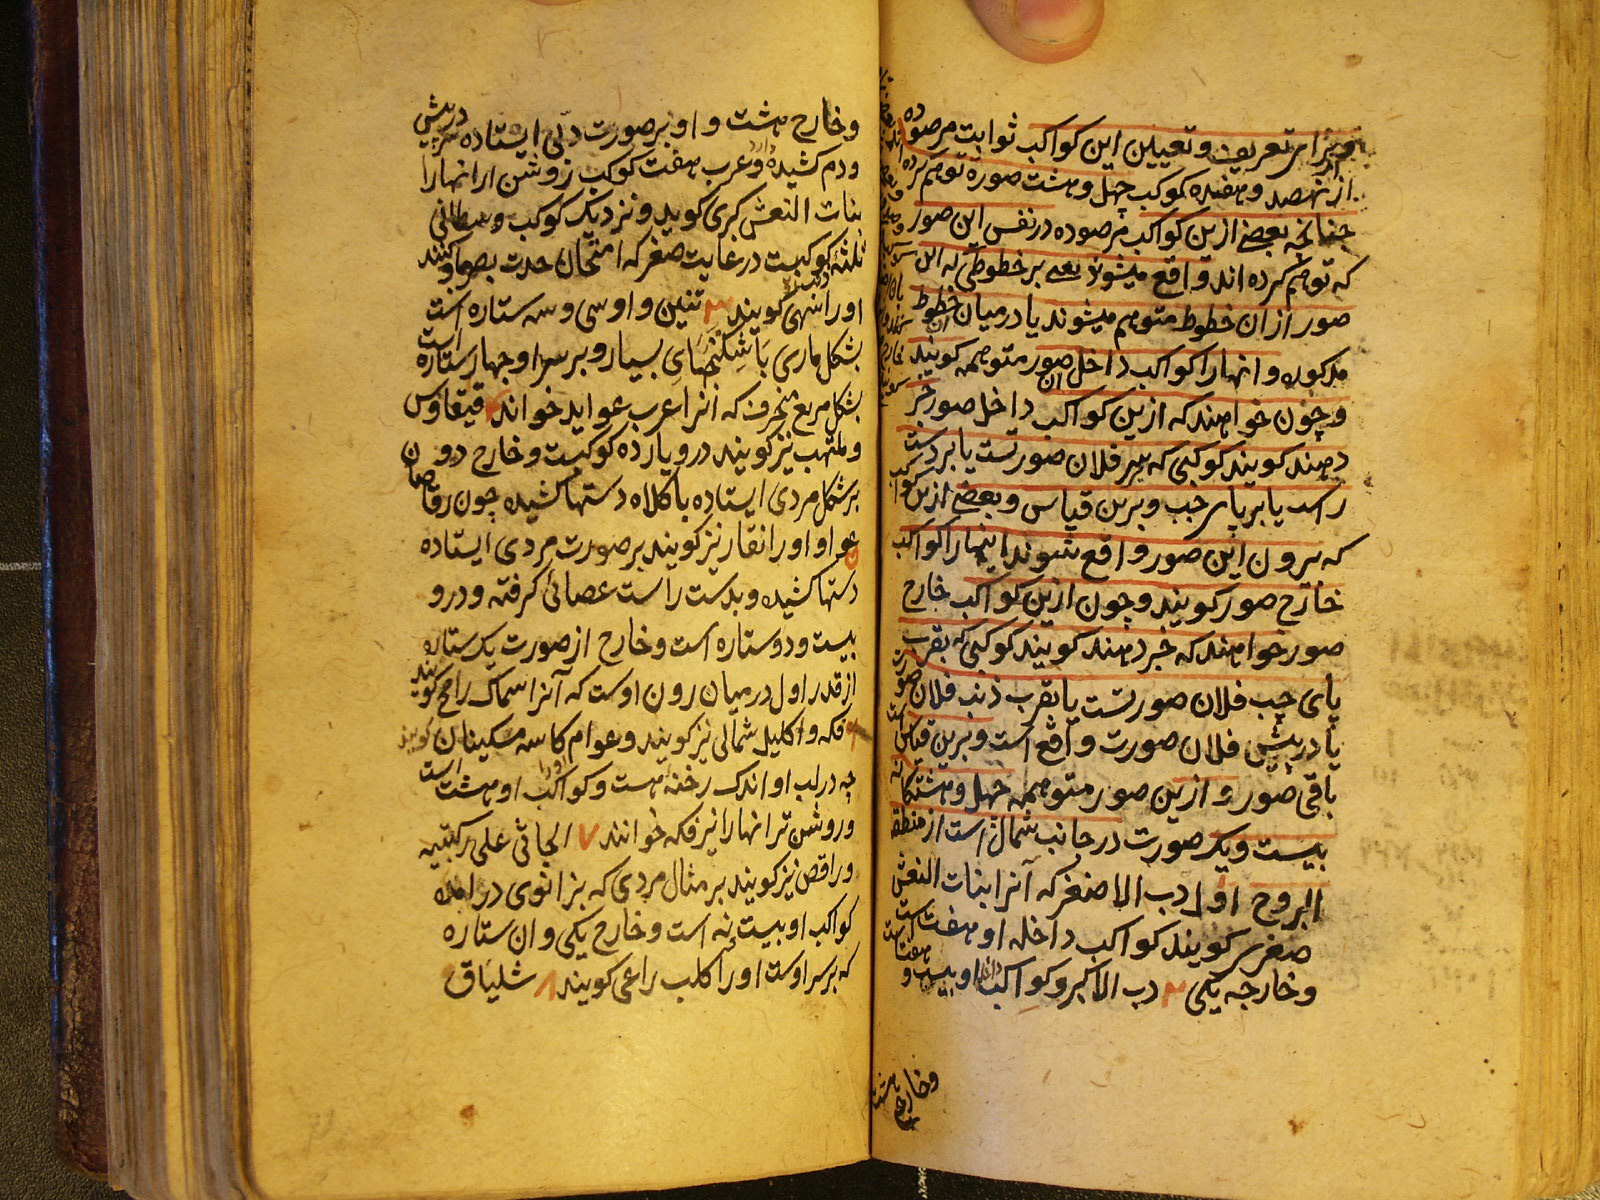 و برای تعریف و تعیین این کواکب ثوابت مرصوده
از نهصد و هفده کوکب چهل و هشت صورة توهم کرده اند
چنانچه بعضی ازین کواکب مرصوده در نفس این صور
که توهم کرده اند واقع میشوند یعنی بر خطوطی که این
صور از ان خطوط متوهم میشوند یا در میان ان خطوط
مذکوره و انهارا کواکب داخل صور متوهمه کویند
و چون خواهند که ازین کواکب داخل ان صور خبر
دهند کویند کوکبی که بر سر فلان صورتست یا بر دست
راست یا بر پای چپ و برین قیاس و بعضی ازین کواکب
که بیرون این صور واقع شوند اینهارا کواکب
خارج صور کویند و چون ازین کواکب خارج
صور خواهند که خبر دهند کویند کوکبی که بقرب
پای چپ فلان صورتست یا بقرب ذنب فلان صورتست
یا در پیش فلان صورت واقع است و برین قیاس
باقی صور و ازین صور متوهمه چهل و هشتکانه
بیست و یک صورت در جانب شمال است از منطقة
البروج اول دب الاصغر که آنرا بنات النعش
صغری کویند کواکب داخله او هفت است
و خارجه یکی ۲ دب الاکبر و کواکب داخل او بیست و هفت است
و خارج هشت
و خارج هشت و او بر صورت دبی ایستاده سر پیش
و دم کشیده دارد و عرب هفت کوکب روشن از انهارا
بنات النعش کبری کویند و نزدیک کوکب وسطانی
ثلثه کوکبیست در غایت صغر که امتحان حدت بصر باو کنند
اورا سهی کویند ۳ تنین و او سی و سه ستاره است
بشکل ماری با شکنجهای بسیار و بر سر او چهار ستاره است
بشکل مربع منحرف که آنرا عرب عواید خواند ۴ قیقاوس
و ملتهب نیز کویند در و یازده کوکبست و خارج دو
بر شکل مردی ایستاده با کلاه دستها کشیده چون رقاصان
۵ عوا و او را نقار نیز کویند بر صورت مردی ایستاده
دستها کشیده و بدست راست عصائی کرفته و در و
بیست و دو ستاره است و خارج از صورت یک ستاره
از قدر اول در میان رون اوست که آنرا سماک رامح کویند
۶ فکه و اکلیل شمالی نیز کویند و عوام کاسه مسکینان کویند
چه در لب او اندک رخنه هست و کواکب او هشت است
و روشن تر انهارا نیز فکه خوانند ۷ الجاثی علی رکبتیه
و راقص نیز کویند بر مثال مردی که بزانوی در امده
کواکب او بیست نه است و خارج یکی و ان ستاره
که بر سر اوست اورا کلب راعی کویند ۸ شلیاق